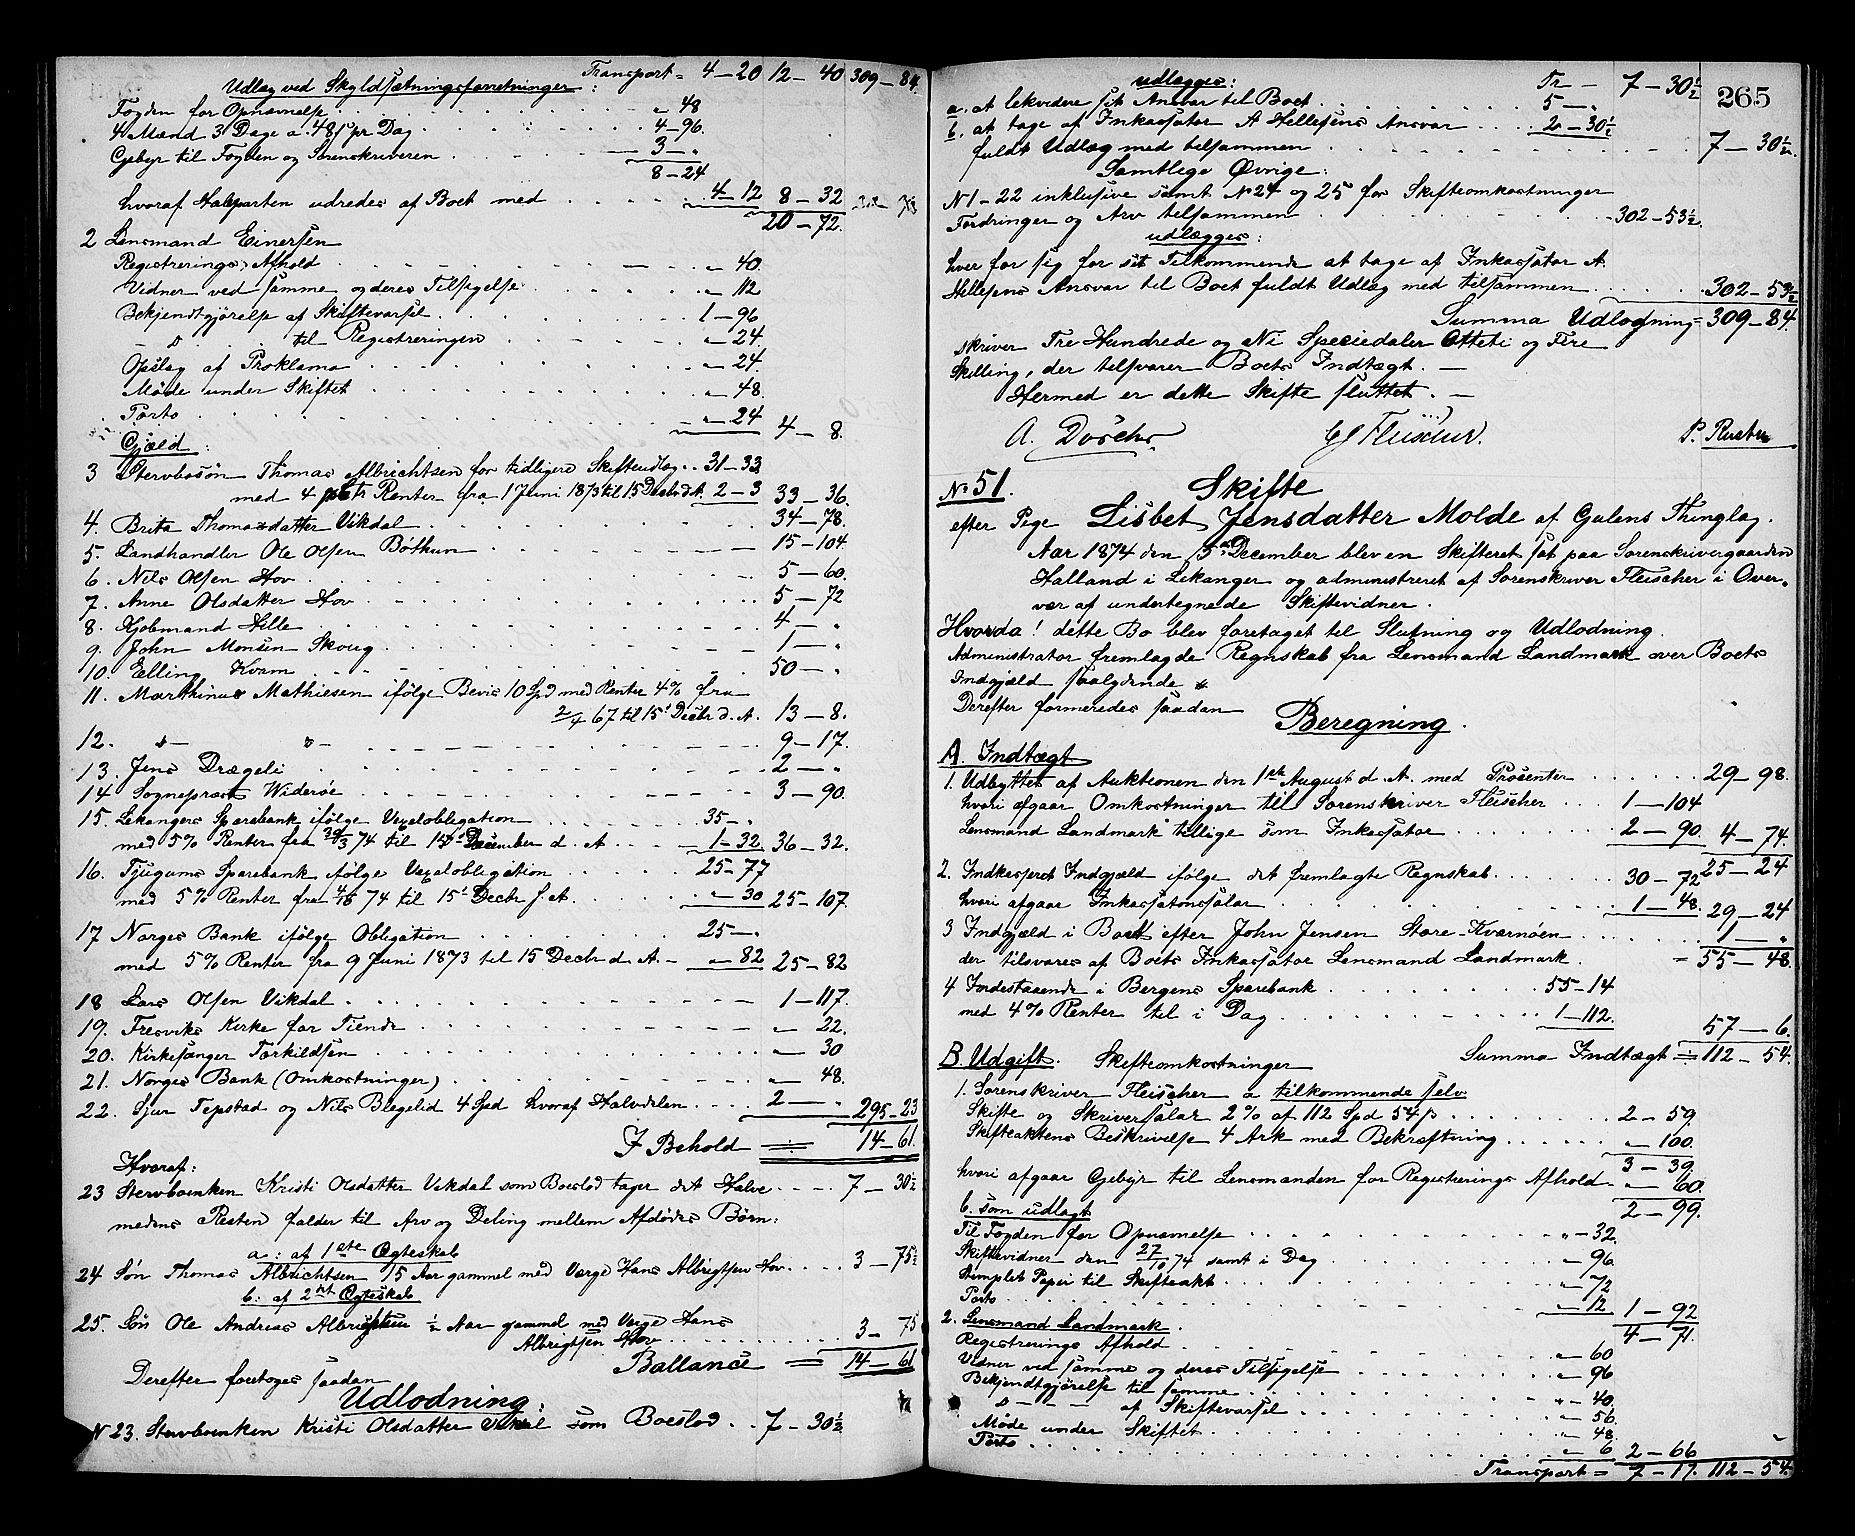 Transport = 4 – 20 12 – 40 309 – 84
Udlæg ved Skyldsætningsforretninger:
Fogden for Opnævnelse . . . " 48
4 Mænd 3 Dage a 48 ß pr Dag . . . 4 – 96.
Gebyr til Fogden og Sorenskriveren . . . 3 – "
8 – 24
hvoraf Halvparten udredes af Boet med . . . 4 – 12 8 – 32
20 – 72.
2 Lensmand Einersen
Registrerings Afhold . . . " 40.
Vidner ved samme og deres Tilsigelse . . . " 112
Bekjendtgjørelse af Skiftevarsel . . . 1 – 96
– " – til Registreringen . . . " 24.
Opslag af Proklama . . . " 24.
Møde under Skiftet . . . " 48.
Porto . . . " 24 4 – 8.
Gjæld:
3 Stervbosøn Thomas Albrichtsen for tidligere Skifteudlæg . . 31 – 33
med 4 pCt Renter fra 1 Juni 1873 til 15 Decbr d. A. 2 – 3 33 – 36.
4. Brita Thomasdatter Vikdal . . . 34 – 78.
5. Landhandler Ole Olsen Bøthun . . . 15 – 104.
6. Nils Olsen Hov . . . 5 – 60.
7. Anne Olsdatter Hov . . . 5 – 72
8. Kjøbmand Hille . . . 4 – "
9. John Monsen Skoug . . . 1 – "
10. Elling Kvam . . . 50 – "
11. Marthinus Mathiesen ifølge Bevis 10 Spd med Renter 4% fra
2/4 67 til 15 Decbr d. A. 13 – 8.
12. " – " – . . . 9 – 17.
13. Jens Drægeli . . . 2 – "
14 Sogneprest Widerøe . . . 3 – 90.
15. Lekangers Sparebank ifølge Vexelobligation . . . 35 – "
med 5% Renter fra 30/3 74 til 15 December d. A . . . 1 – 32. 36 – 32.
16. Tjugums Sparebank ifølge Vexelobligation . . . 25 – 77
med 5% Renter fra 4/10 74 til 15 Decbr s. at. . . . " – 30 25 – 107.
17 Norges Bank ifølge Obligation . . . 25 – "
med 5% Renter fra 9 Juni 1873 til 15 Decbr d. A – " 82 25 – 82
18 Lars Olsen Vikdal . . . 1 – 117.
19. Fresviks Kirke for Tiende . . . " 22.
20. Kirkesanger Torkildsen . . . " 30
21. Norges Bank (Omkostninger) . . . " 48.
22. Sjur Tepstad og Nils Blegelid 4 Spd hvoraf Halvdelen . . . 2 – " 295 – 23
I Behold = 14 – 61.
Hvoraf:
23 Stervboenken Kristi Olsdatter Vikdal som Boeslod tager det Halve . . . 7 – 30½
medens Resten falder til Arv og Deling mellem Afdødes Børn:
a: af 1ste Ægteskab
24 Søn Thomas Albrichtsen 15 Aar gammel med Værge Hans Albrigtsen Hov . . . 3 – 75½
b: af 2det Ægteskab
25. Søn Ole Andreas Albrigtsen ½ Aar gammel med Værge Hans
Albrigtsen Hov . . . 3 – 75
Ballance = 14 – 61
Derefter foretoges saadan
Udlodning:
N 23. Stervboenken Kristi Olsdatter Vikdal som Boeslod . . 7 – 30½
265
udlægges: Tr – 7 – 30½
a. at lekvidere sit Ansvar til Boet . . . 5 – "
b. at tage af Inkassator A Hellesens Ansvar . . . 2 – 30½
fuldt Udlæg med tilsammen . . . 7 – 30½.
Samtlige Øvrige:
N 1 – 22 inklusive samt N 24 og 25 for Skifteomkostninger
Fordringer og Arv tilsammen . . . 302 – 53½.
udlægges:
hver for sig for sit Tilkommende at tage af Inkassator A.
Hellesens Ansvar til Boet fuldt Udlæg med tilsammen . . . 302 – 53½
Summa Udlodning = 309 – 84.
skriver Tre Hundrede og Ni Speciedaler Otteti og Fire
Skilling, der tilsvarer Boets Indtægt. –
Hermed er dette Skifte sluttet. –
CFleischer. P. Rusten
No 51. Skifte
efter Pige Lisbet Jensdatter Molde af Gulens Thinglag.
Aar 1874 den 15 December blev en Skifteret sat paa Sorenskrivergaarden
Halland i Lekanger og administreret af Sorenskriver Fleischer i Over-
vær af undertegnede Skiftevidner.
Hvorda! dette Bo blev foretaget til Slutning og Udlodning.
Administrator fremlagde Regnskab fra Lensmand Landmark over Boets
Indgjæld saalydende
Derefter formeredes saadan
Beregning.
A. Indtægt
1. Udbyttet af Auktionen den 1ste August d. A. med Prosenter . . . 29 – 98.
hvori afgaar Omkostninger til Sorenskriver Fleischer . . . 1 – 104
Lensmand Landmark tillige som Inkassator . . . 2 – 90. 4 – 74.
25 – 24
2. Indkasseret Indgjæld ifølge det fremlagte Regnskab . . . 30 – 72
hvori afgaar Inkassationssalær . . . 1 – 48. 29 – 24
3 Indgjæld i Boet efter John Jensen Store-Kværnøen . . . 1 – "
der tilsvares af Boets Inkassator Lensmand Landmark. = 55 – 48.
4 Indestaaende i Bergens Sparebank . . . 55 – 14
med 4% Renter til i Dag . . . 1 – 112. 57 – 6.
Summa Indtægt = 112 – 54.
B. Udgift. Skifteomkostninger
1. Sorenskriver Fleischer a tilkommende selv
Skifte og Skriversalær 2% af 112 Spd 54 ß . . . 2 – 59.
Skifteaktens Beskrivelse 4 Ark med Bekræftning . . . " 100.
3 – 39.
hvori afgaar Gebyr til Lensmanden for Registrerings Afhold . . . " 60.
2 – 99.
b. som udlagt
Til Fogden for Opnævnelse . . . " 32.
Skiftevidner den 27/10 74 samt i Dag . . . " 96.
Stemplet Papir til Skifteakt . . . " 72
Porto . . . " 12 1 – 92
4 – 71.
2. Lensmand Landmark.
Registrerings Afhold . . . " 60
Vidner ved samme og deres Tilsigelse . . . " 96
Bekjendtgjørelse til samme . . . " 40.
" – – af Skiftevarsel . . . " 56.
Møde under Skiftet . . . " 48.
Porto . . . " 6 2 – 66
Transport = 7 – 17. 112 – 54.